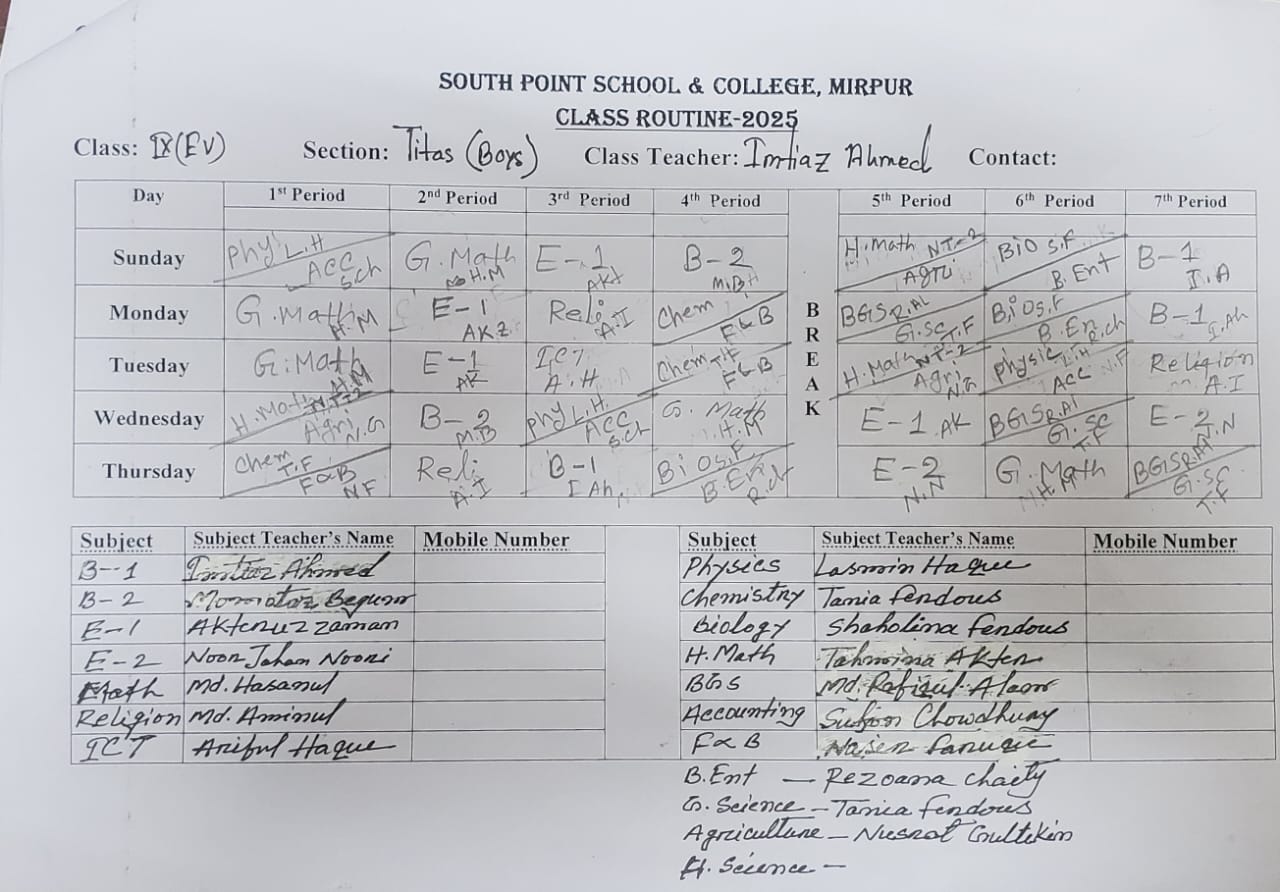 SOUTH POINT SCHOOL & COLLEGE, MIRPUR
CLASS ROUTINE-2025
Class: IX(EV) Section: Titas (Boys) Class Teacher: Imtiaz Ahmed Contact:
Day 1st Period 2nd Period 3rd Period 4th Period BREAK 5th Period 6th Period 7th Period
Sunday Phy L.H ACC S.ch G. Math H.M E-1 AKt B-2 M.B H. Math NT-2 Agri BIO S.F B. Ent B-1 I.A
Monday G. Math H.M E-1 AKZ Reli A.I Chem F&B BGS R.Al G.SC T.F Bio S.F B. En R.ch B-1 I.Ah
Tuesday G. Math H.M E-1 AK ICT A.H Chem T.F F&B H. Math NT-2 Agri N.G Physic L.H ACC N.F Religion A.I
Wednesday H. Math NT-2 Agri N.G B-2 M.B Phy L.H. ACC S.ch G. Math H.M E-1 AK BGS R.Al G. SC T.F E-2 N.N
Thursday Chem T.F F&B NF Reli A.I B-1 I Ah Bio S.F B. En R.ch E-2 N.N G. Math H.M BGS R.Al G.SC T.F
Subject Subject Teacher's Name Mobile Number Subject Subject Teacher's Name Mobile Number
B-1 Imtiaz Ahmed Physics Lasmin Haque
B-2 Momotaz Begum Chemistry Tania ferdous
E-1 Akteruzzaman Biology Shaholina ferdous
E-2 Noor Jahan Noori H. Math Tahmina Akter
Math Md. Hasanul BGS Md. Rafiqul Alam
Religion Md. Aminul Accounting Sujon Chowdhury
ICT Ariful Haque F&B Naser faruque
B.Ent — Rezoana chaity
G. Science — Tania ferdous
Agriculture — Nusrat Gultekin
H. Science —